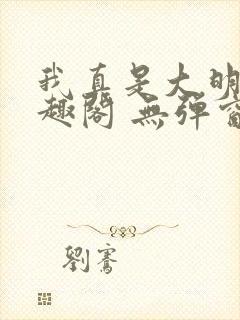 我真是大明
趣閣 無彈窗
劉騫